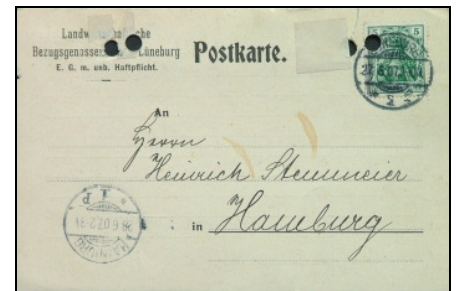 Landw
Bezugsgenossens Lüneburg
E. G. m. unb. Haftpflicht.
Postkarte.
5
An
Herrn
Heinrich Stemmeier
in Hamburg